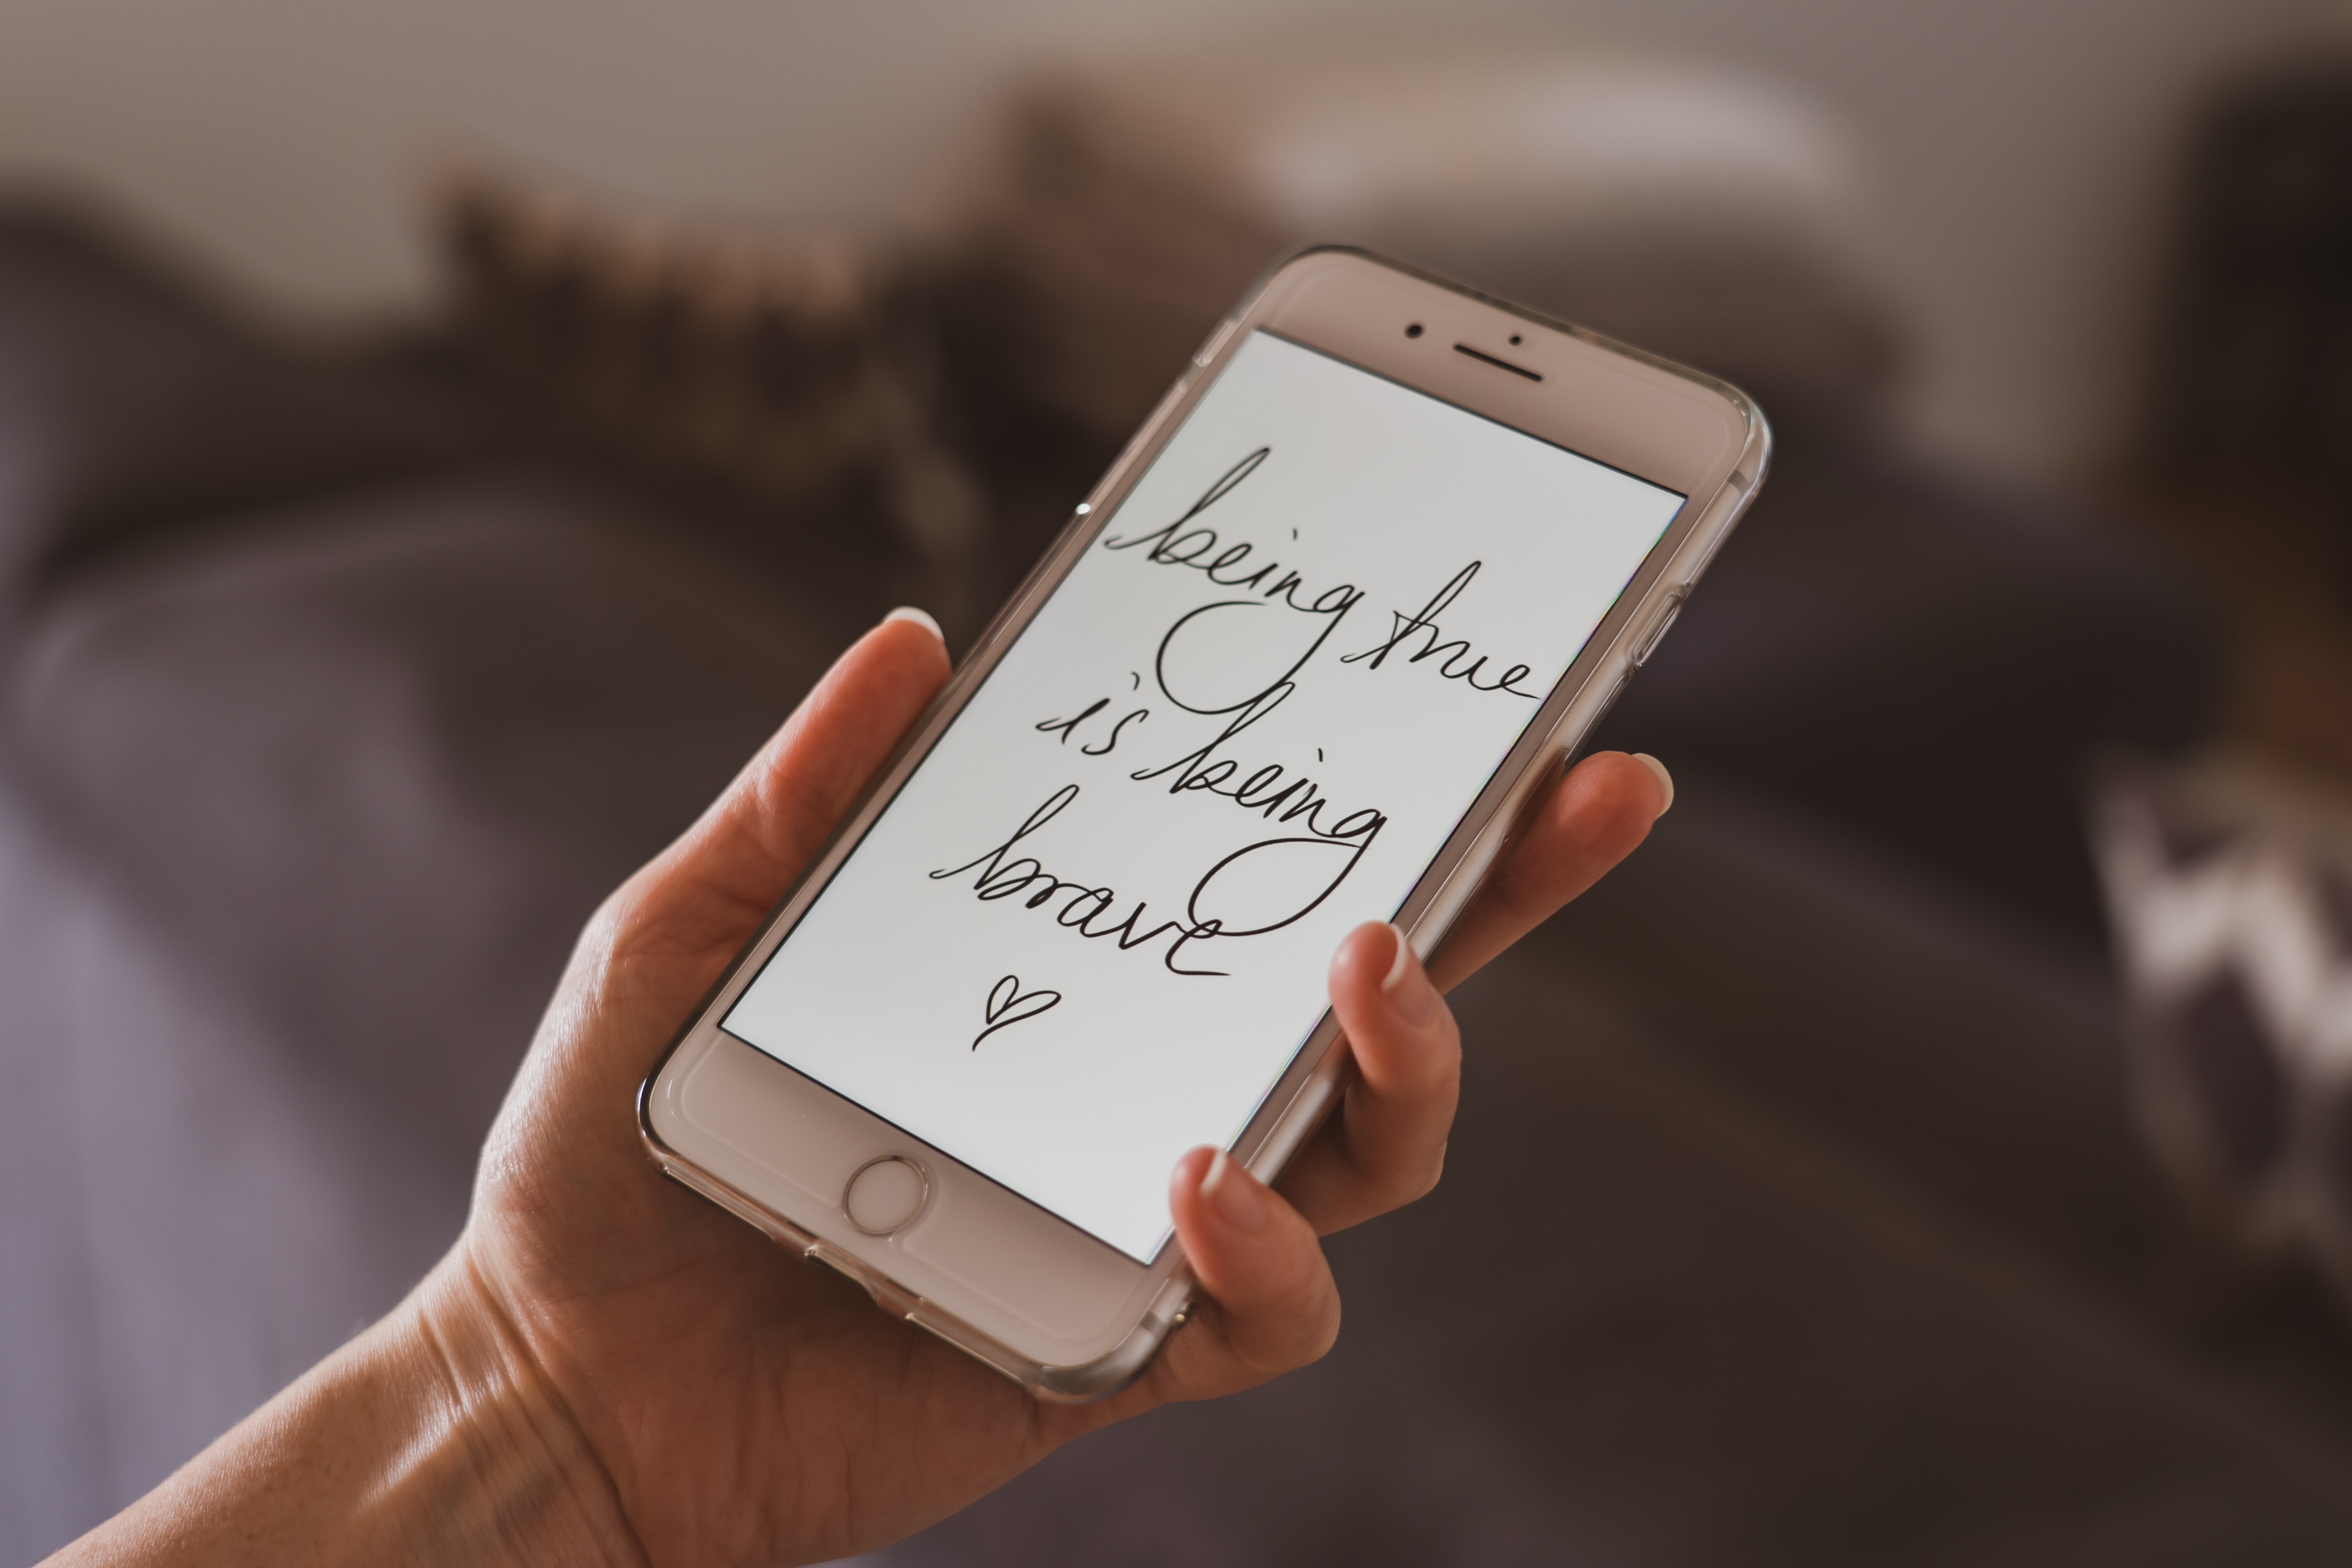 being true
is being
brave